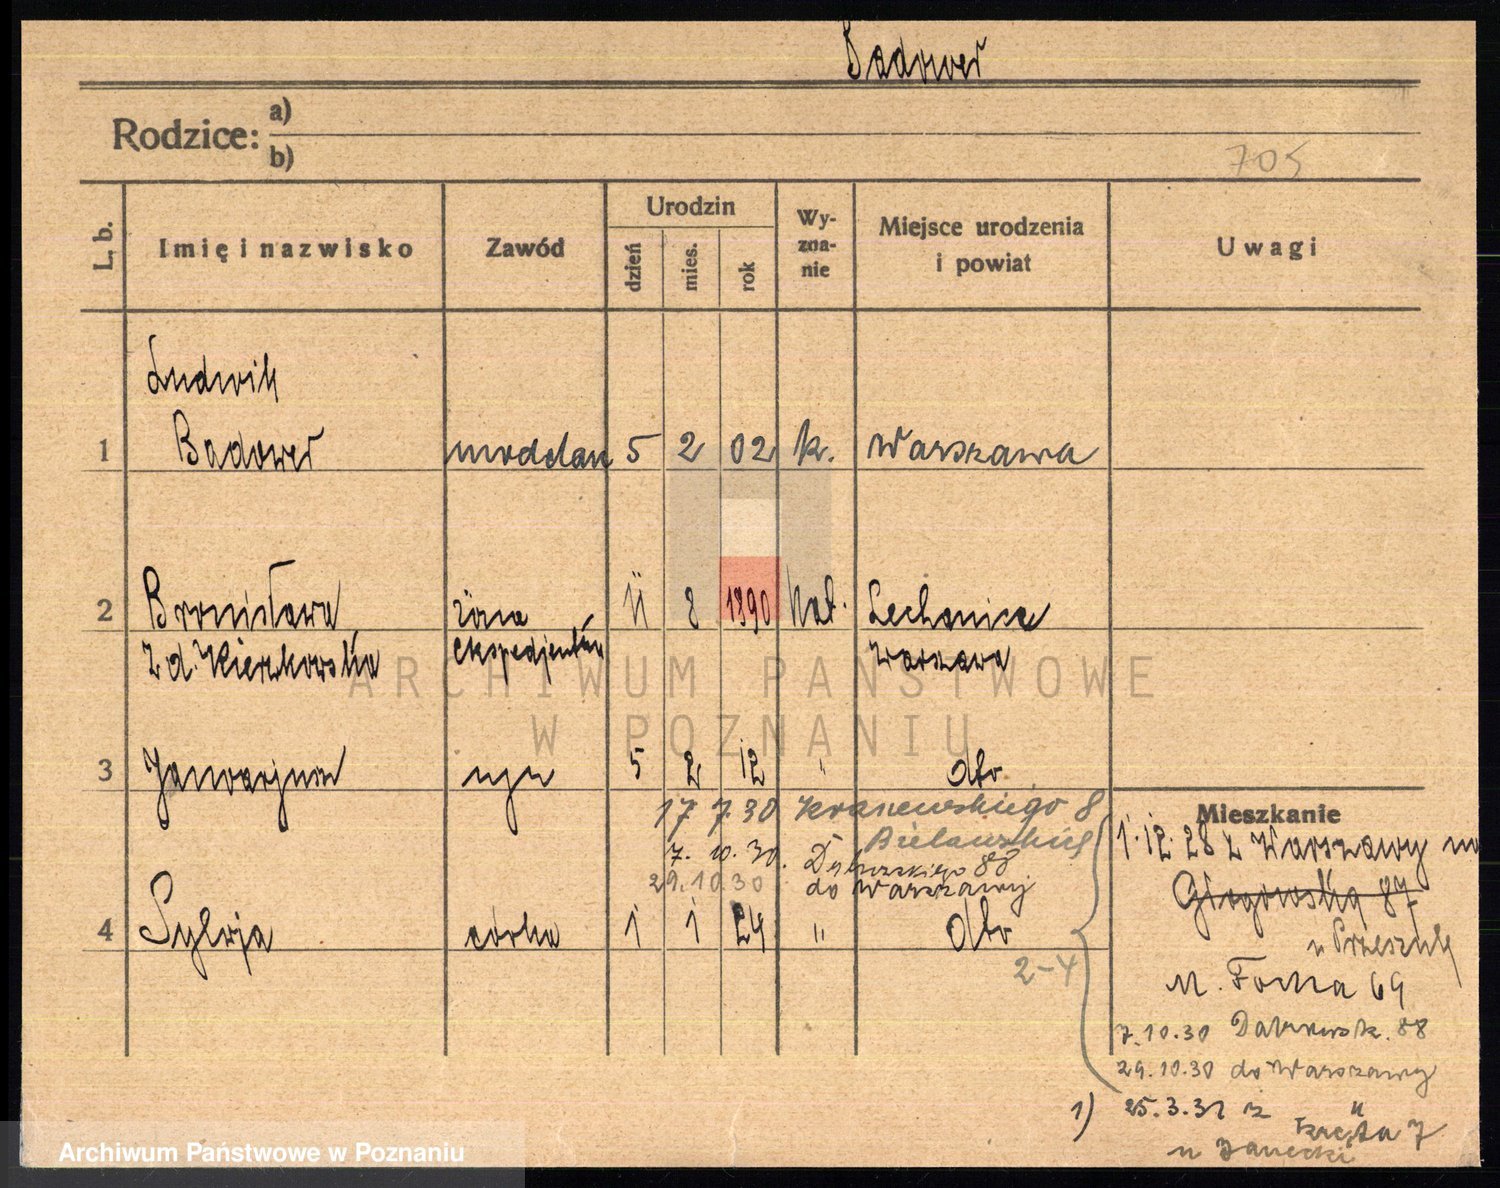 Badower
Rodzice: a)
b)
705
L. b.
Imię i nazwisko
Zawód
Urodzin
dzień
mies.
rok
Wy-
zna-
nie
Miejsce urodzenia
i powiat
Uwagi
Ludwik
1 Badower 5 2 02 k. Warszawa
2 Bronisława żona 11 8 1890 kat. Lechanice
z d. Kierzkowska ekspedjentka Warszawa
ARCHIWUM PAŃSTWOWE
W POZNANIU
3 syn 5 2 12 " dto
Mieszkanie
17 7.30 Kraszewskiego 8
Bielawskiej
7. 10. 30. Dąbrowskiego 88
29.10.30 do Warszawy
4 Sylwja córka 1 1 24 " dto
2-4
1.12.28 z Warszawy na
Głogowską 87
u
M. Focha 69
7.10.30 Dąbrowsk. 88
29.10.30 do Warszawy
1) 25.3.31 z "
Kręta 7
u Janecki
Archiwum Państwowe w Poznaniu